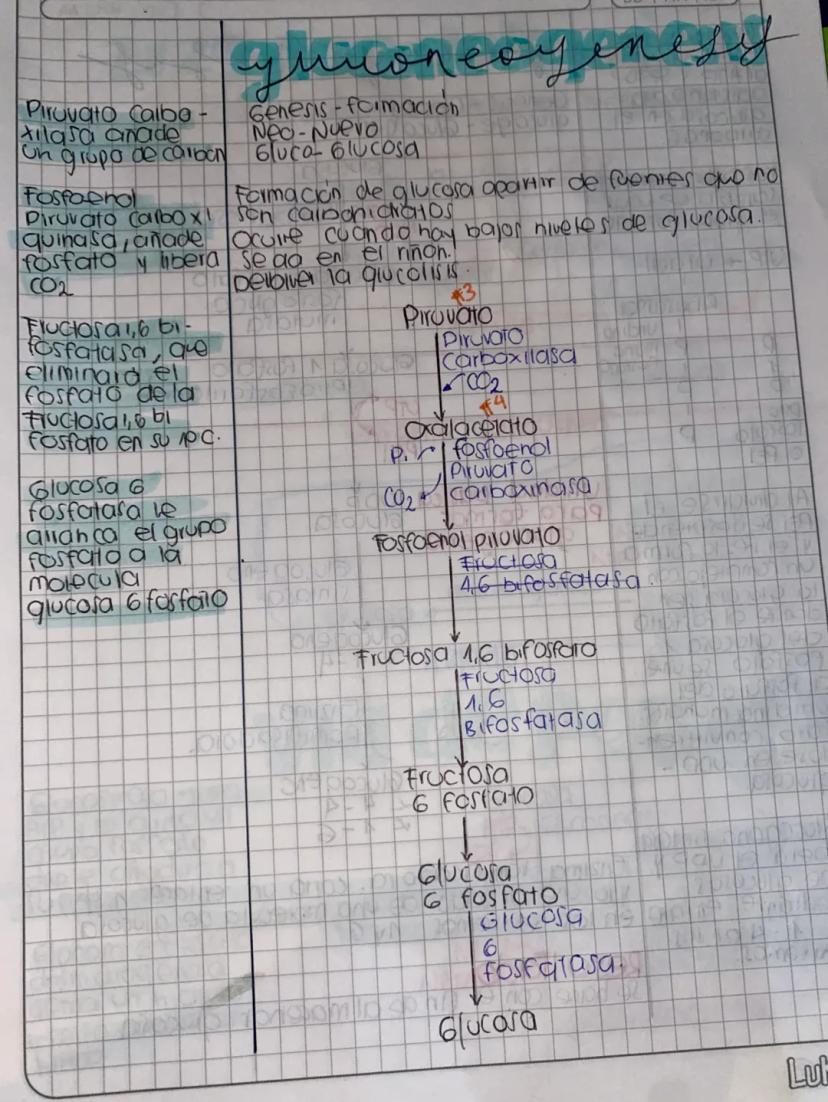 gluconeogenesis
Piruvato Carbo-
xilasa añade
un grupo de carbon
Fosfoenol
Piruvato carboxi
quinasa, añade
fosfato y libera
CO2
Fructosa 1,6 bi-
fosfatasa, que
eliminará el
fosfato de la
fructosa 1,6 bi
fosfato en su 1°C.
Glucosa 6
fosfatasa le
arranca el grupo
fosfato a la
molecula
glucosa 6 fosfato
Genesis - formación
Neo - Nuevo
Gluco - Glucosa
Formación de glucosa apartir de fuentes que no
son carbohidratos
Ocurre cuando hay bajos niveles de glucosa.
Se da en el riñon.
Devolver la glucolisis.
#3
Piruvato
Piruvato
Carboxilasa
CO2
#4
Oxalacelato
P.
fosfoenol
Piruvato
CO2
Carboxinasa
Fosfoenol piruvato
Fructosa
1,6 bifosfatasa
Fructosa 1,6 bifosfato
Fructosa
1,6
Bifosfatasa
Fructosa
6 fosfato
Glucosa
6 fosfato
Glucosa
6
fosfatasa.
Glucosa